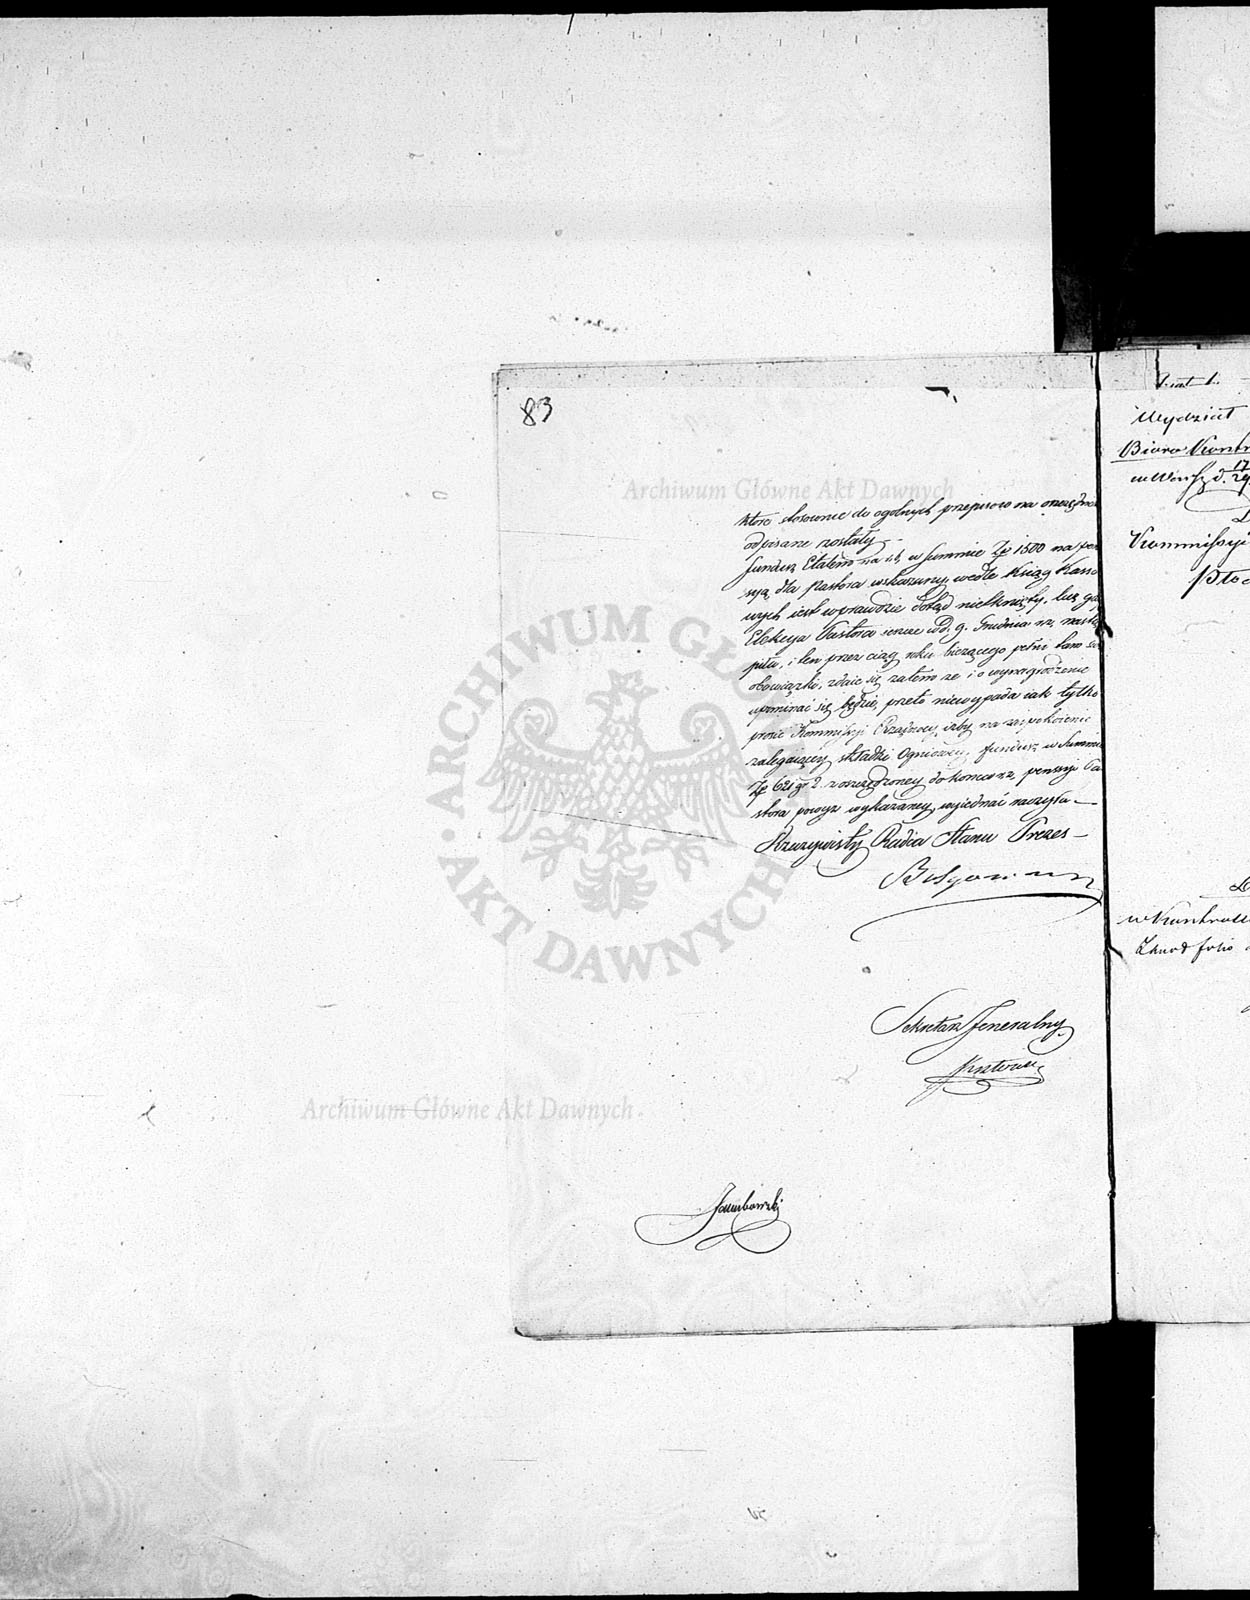 83
Archiwum Główne Akt Dawnych
które stosownie do ogolnych przepisow na
odpisane zostały.
fundusz Etatem na r.b. w Summie Zp 1500 na pen
syą dla Pastora wskazany, wedle Xiąg Kasso
wych jest wprawdzie dotąd nietknięty, lecz gdy
Elekcya Pastora ieszcze w d. 9. Grudnia r.z. nastą
piła, i ten przez ciąg roku bieżącego pełni tam swe
obowiązki, zdaie się zatem że i o wynagrodzenie
upominać się będzie, przeto niewypada iak tylko
prosić Kommissyi Rządzowey, iżby na zaspokoienie
zalegaiącey składki Ogniowey, fundusz w Summie
Zp 621 gr 2 zoszczędzoney do konca r.z. pensyi Pa
stora powyż wykazaney, wyiednać raczyła —
Rzeczywisty Radca Stanu Prezes —
Sekretarz Jeneralny
ARCHIWUM GŁÓWNE AKT DAWNYCH
Archiwum Główne Akt Dawnych
Wydział
Biuro Kontr
w Warsz d. 17/29
Kommissyi
Płoc
w Kontroll
folio